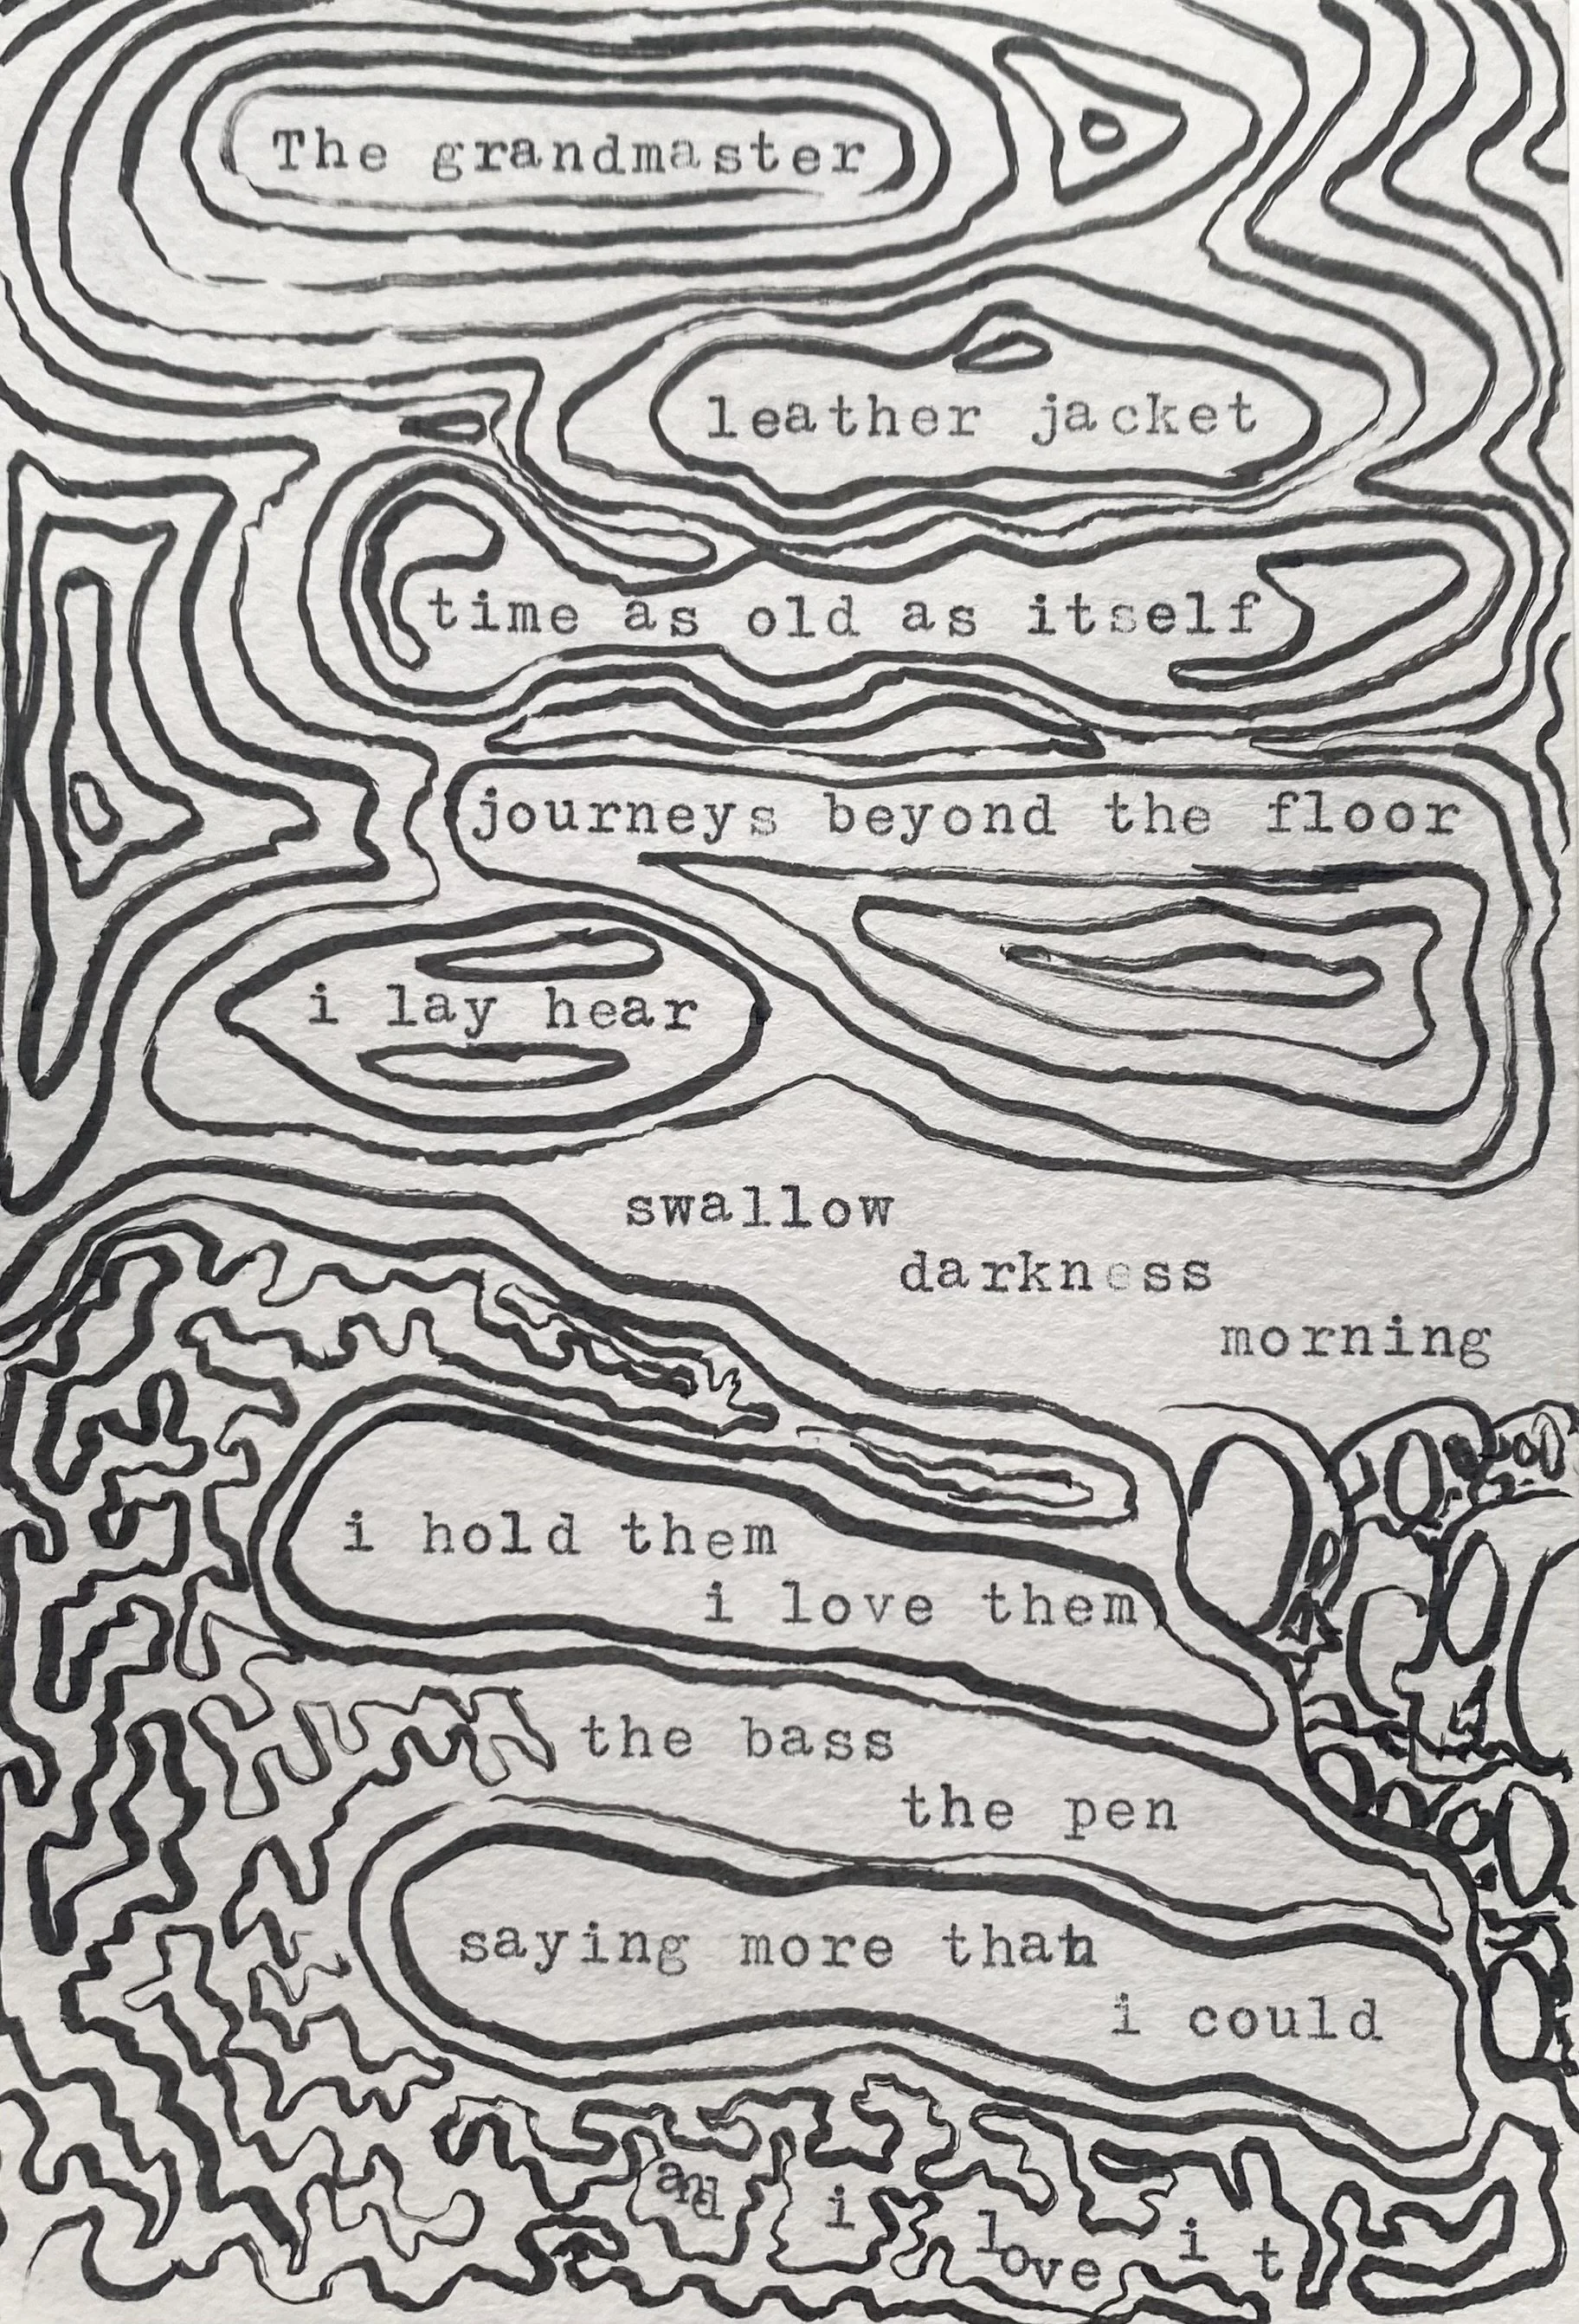 The grandmaster
leather jacket
time as old as itself
journeys beyond the floor
i lay hear
swallow
darkness
morning
i hold them
i love them
the bass
the pen
saying more than
i could
and i love it